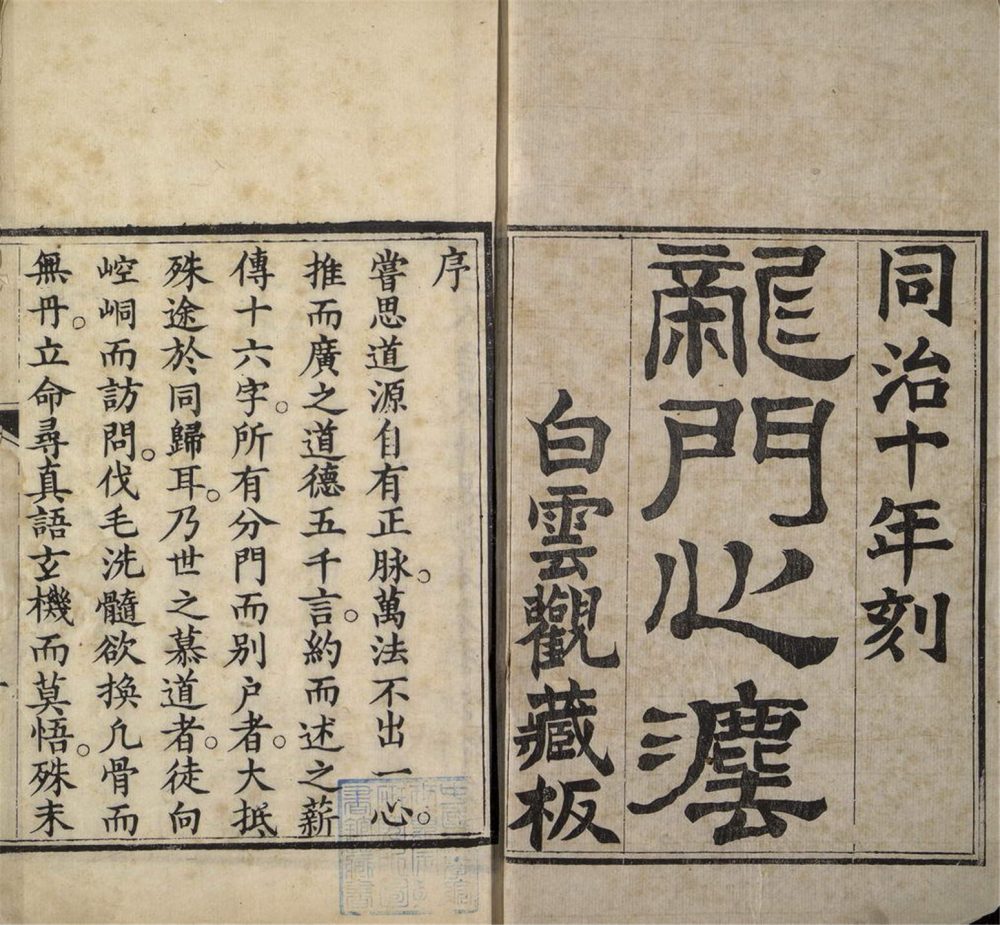 同治十年刻
龍門心灋
白雲觀藏板
序
嘗思道源自有正脉。萬法不出一心。
推而廣之道德五千言。約而述之薪
傳十六字。所有分門而别户者。大抵
殊途於同歸耳。乃世之慕道者。徒向
崆峒而訪問。伐毛洗髓欲換凢骨而
無丹。立命尋真語玄機而莫悟。殊未